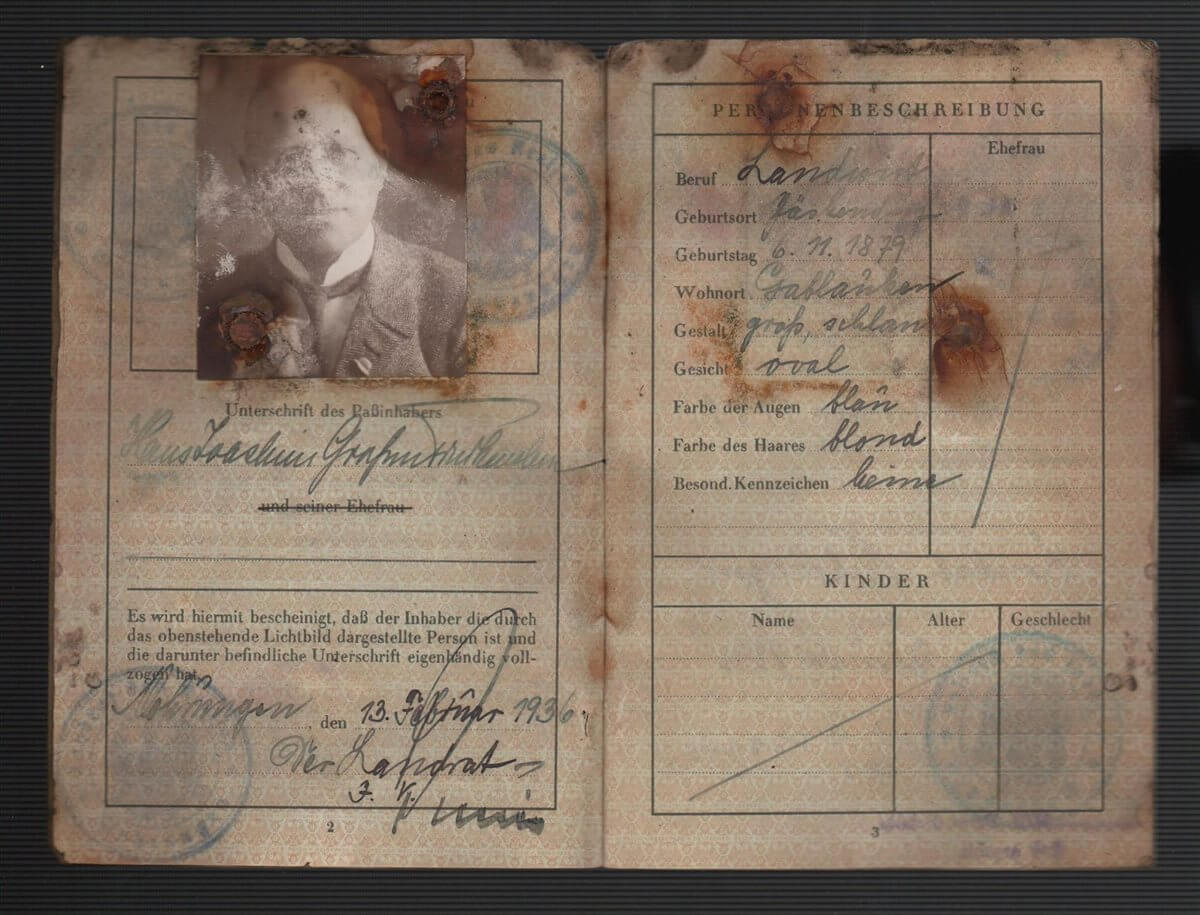 Unterschrift des Paßinhabers
Hans Joachim
und seiner Ehefrau
Es wird hiermit bescheinigt, daß der Inhaber die durch
das obenstehende Lichtbild dargestellte Person ist und
die darunter befindliche Unterschrift eigenhändig voll-
zogen hat.
Mohrungen, den 13. Februar 1936
Der Landrat
J. V.
2
PERSONENBESCHREIBUNG
Ehefrau
Beruf Landwirt
Geburtsort
Geburtstag 6. 11. 1879
Wohnort Gablauken
Gestalt groß, schlank
Gesicht oval
Farbe der Augen blau
Farbe des Haares blond
Besond. Kennzeichen keine
KINDER
Name Alter Geschlecht
3